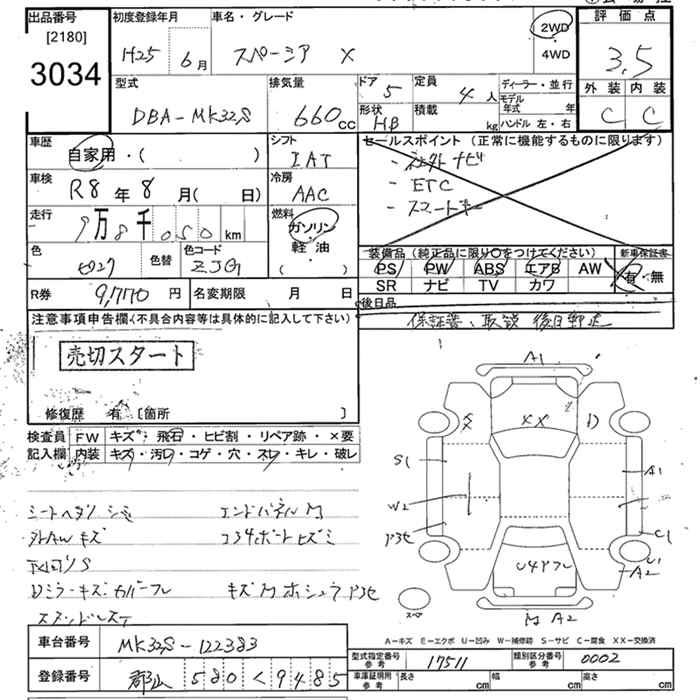 出品番号
[2180]
3034
初度登録年月
H25 6月
車名・グレード
スペーシア X
2WD
4WD
評価点
3.5
外装 内装
C C
型式
DBA-MK32S
排気量
660cc
ドア
5
形状
HB
定員
4人
積載
kg
ディーラー・並行
モデル年式 年
ハンドル 左・右
車歴
自家用・( )
車検
R8年8月( 日)
走行
9万8千050km
色
色替
色コード
ZJG
シフト
IAT
冷房
AAC
燃料
ガソリン
軽油
( )
セールスポイント (正常に機能するものに限ります)
・社外ナビ
・ETC
・スマートキー
装備品 (純正品に限り〇をつけてください)
PS PW ABS エアB AW
SR ナビ TV カワ
新車保証書
有・無
R券 9,770円
名変期限 月 日
後日品
保証書、取説 後日郵送
注意事項申告欄 (不具合内容等は具体的に記入して下さい)
売切スタート
修復歴 有 [箇所 ]
検査員記入欄
FW キズ・飛石・ヒビ割・リペア跡・×要
内装 キズ・汚れ・コゲ・穴・スレ・キレ・破レ
シートヘタリ シミ
エンドパネル
外AWキズ
コシ4ボートヒズミ
Dミラーキズ カバーワレ
A1
XX
S1
W2
A1
C1
U1
A2
A2
A-キズ E-エクボ U-凹み W-補修跡 S-サビ C-腐食 XX-交換済
車台番号
MK32S-122383
登録番号
郡山 580 く 9485
型式指定番号
参考
17511
類別区分番号
参考
0002
車庫証明用
参考
長さ cm
幅 cm
高さ cm